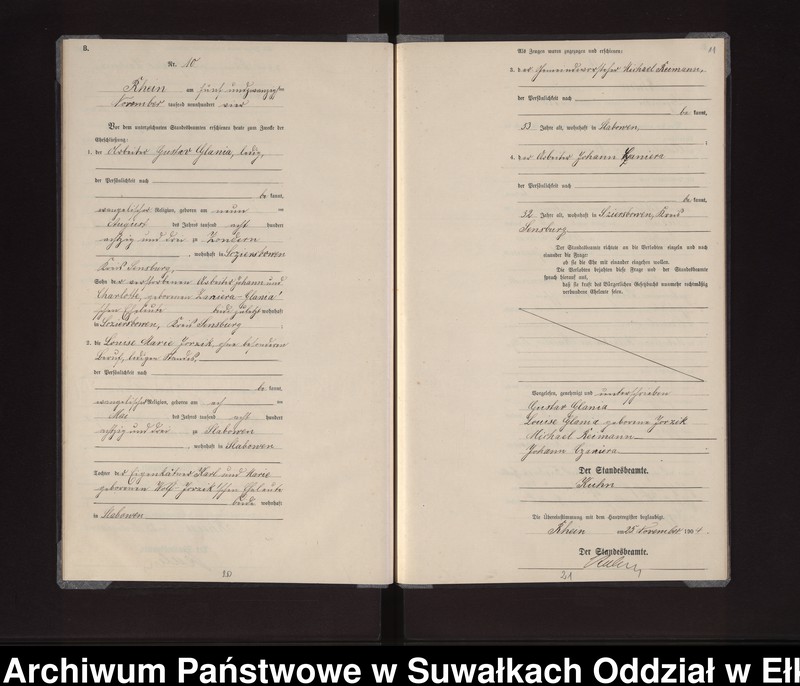 B.
Nr. 10
Rhein am fünf und zwanzigsten
November tausend neunhundert vier
Vor dem unterzeichneten Standesbeamten erschienen heute zum Zwecke der
Eheschließung:
1. der Arbeiter Gustav Glania, ledig,
der Persönlichkeit nach
be kannt,
evangelischer Religion, geboren am neun ten
August des Jahres tausend acht hundert
achtzig und drei zu Kondern
, wohnhaft in Sczierzbowen
Kreis Sensburg,
Sohn des verstorbenen Arbeiters Johann und
Charlotte, geborenen Czeniera-Glania'
schen Eheleute beide zuletzt wohnhaft
in Sczierzbowen, Kreis Sensburg
2. die Louise Marie Jorzik, ohne besonderen
Beruf, ledigen Standes,
der Persönlichkeit nach
be kannt,
evangelischer Religion, geboren am
Mai des Jahres tausend acht hundert
achtzig und drei zu Stabowen
, wohnhaft in Stabowen
Tochter des Eigenkätners Karl und Marie
geborenen Wolf-Jorzik'schen Eheleute
beide wohnhaft
in Stabowen
20
11
Als Zeugen waren zugezogen und erschienen:
3. der Gemeindevorsteher Michael Reimann,
der Persönlichkeit nach
be kannt,
53 Jahre alt, wohnhaft in Stabowen,
;
4. der Arbeiter Johann Czeniera
der Persönlichkeit nach
be kannt,
32 Jahre alt, wohnhaft in Sczierzbowen, Kreis
Sensburg
Der Standesbeamte richtete an die Verlobten einzeln und nach
einander die Frage:
ob sie die Ehe mit einander eingehen wollen.
Die Verlobten bejahten diese Frage und der Standesbeamte
sprach hierauf aus,
daß sie kraft des Bürgerlichen Gesetzbuchs nunmehr rechtmäßig
verbundene Eheleute seien.
Vorgelesen, genehmigt und unterschrieben
Gustav Glania
Louise Glania geborene Jorzik
Michael Reimann
Johann Czeniera
Der Standesbeamte.
Kuhn
Die Übereinstimmung mit dem Hauptregister beglaubigt.
Rhein am 25 November 1904.
Der Standesbeamte.
Kuhn
21
Archiwum Państwowe w Suwałkach Oddział w Ełk